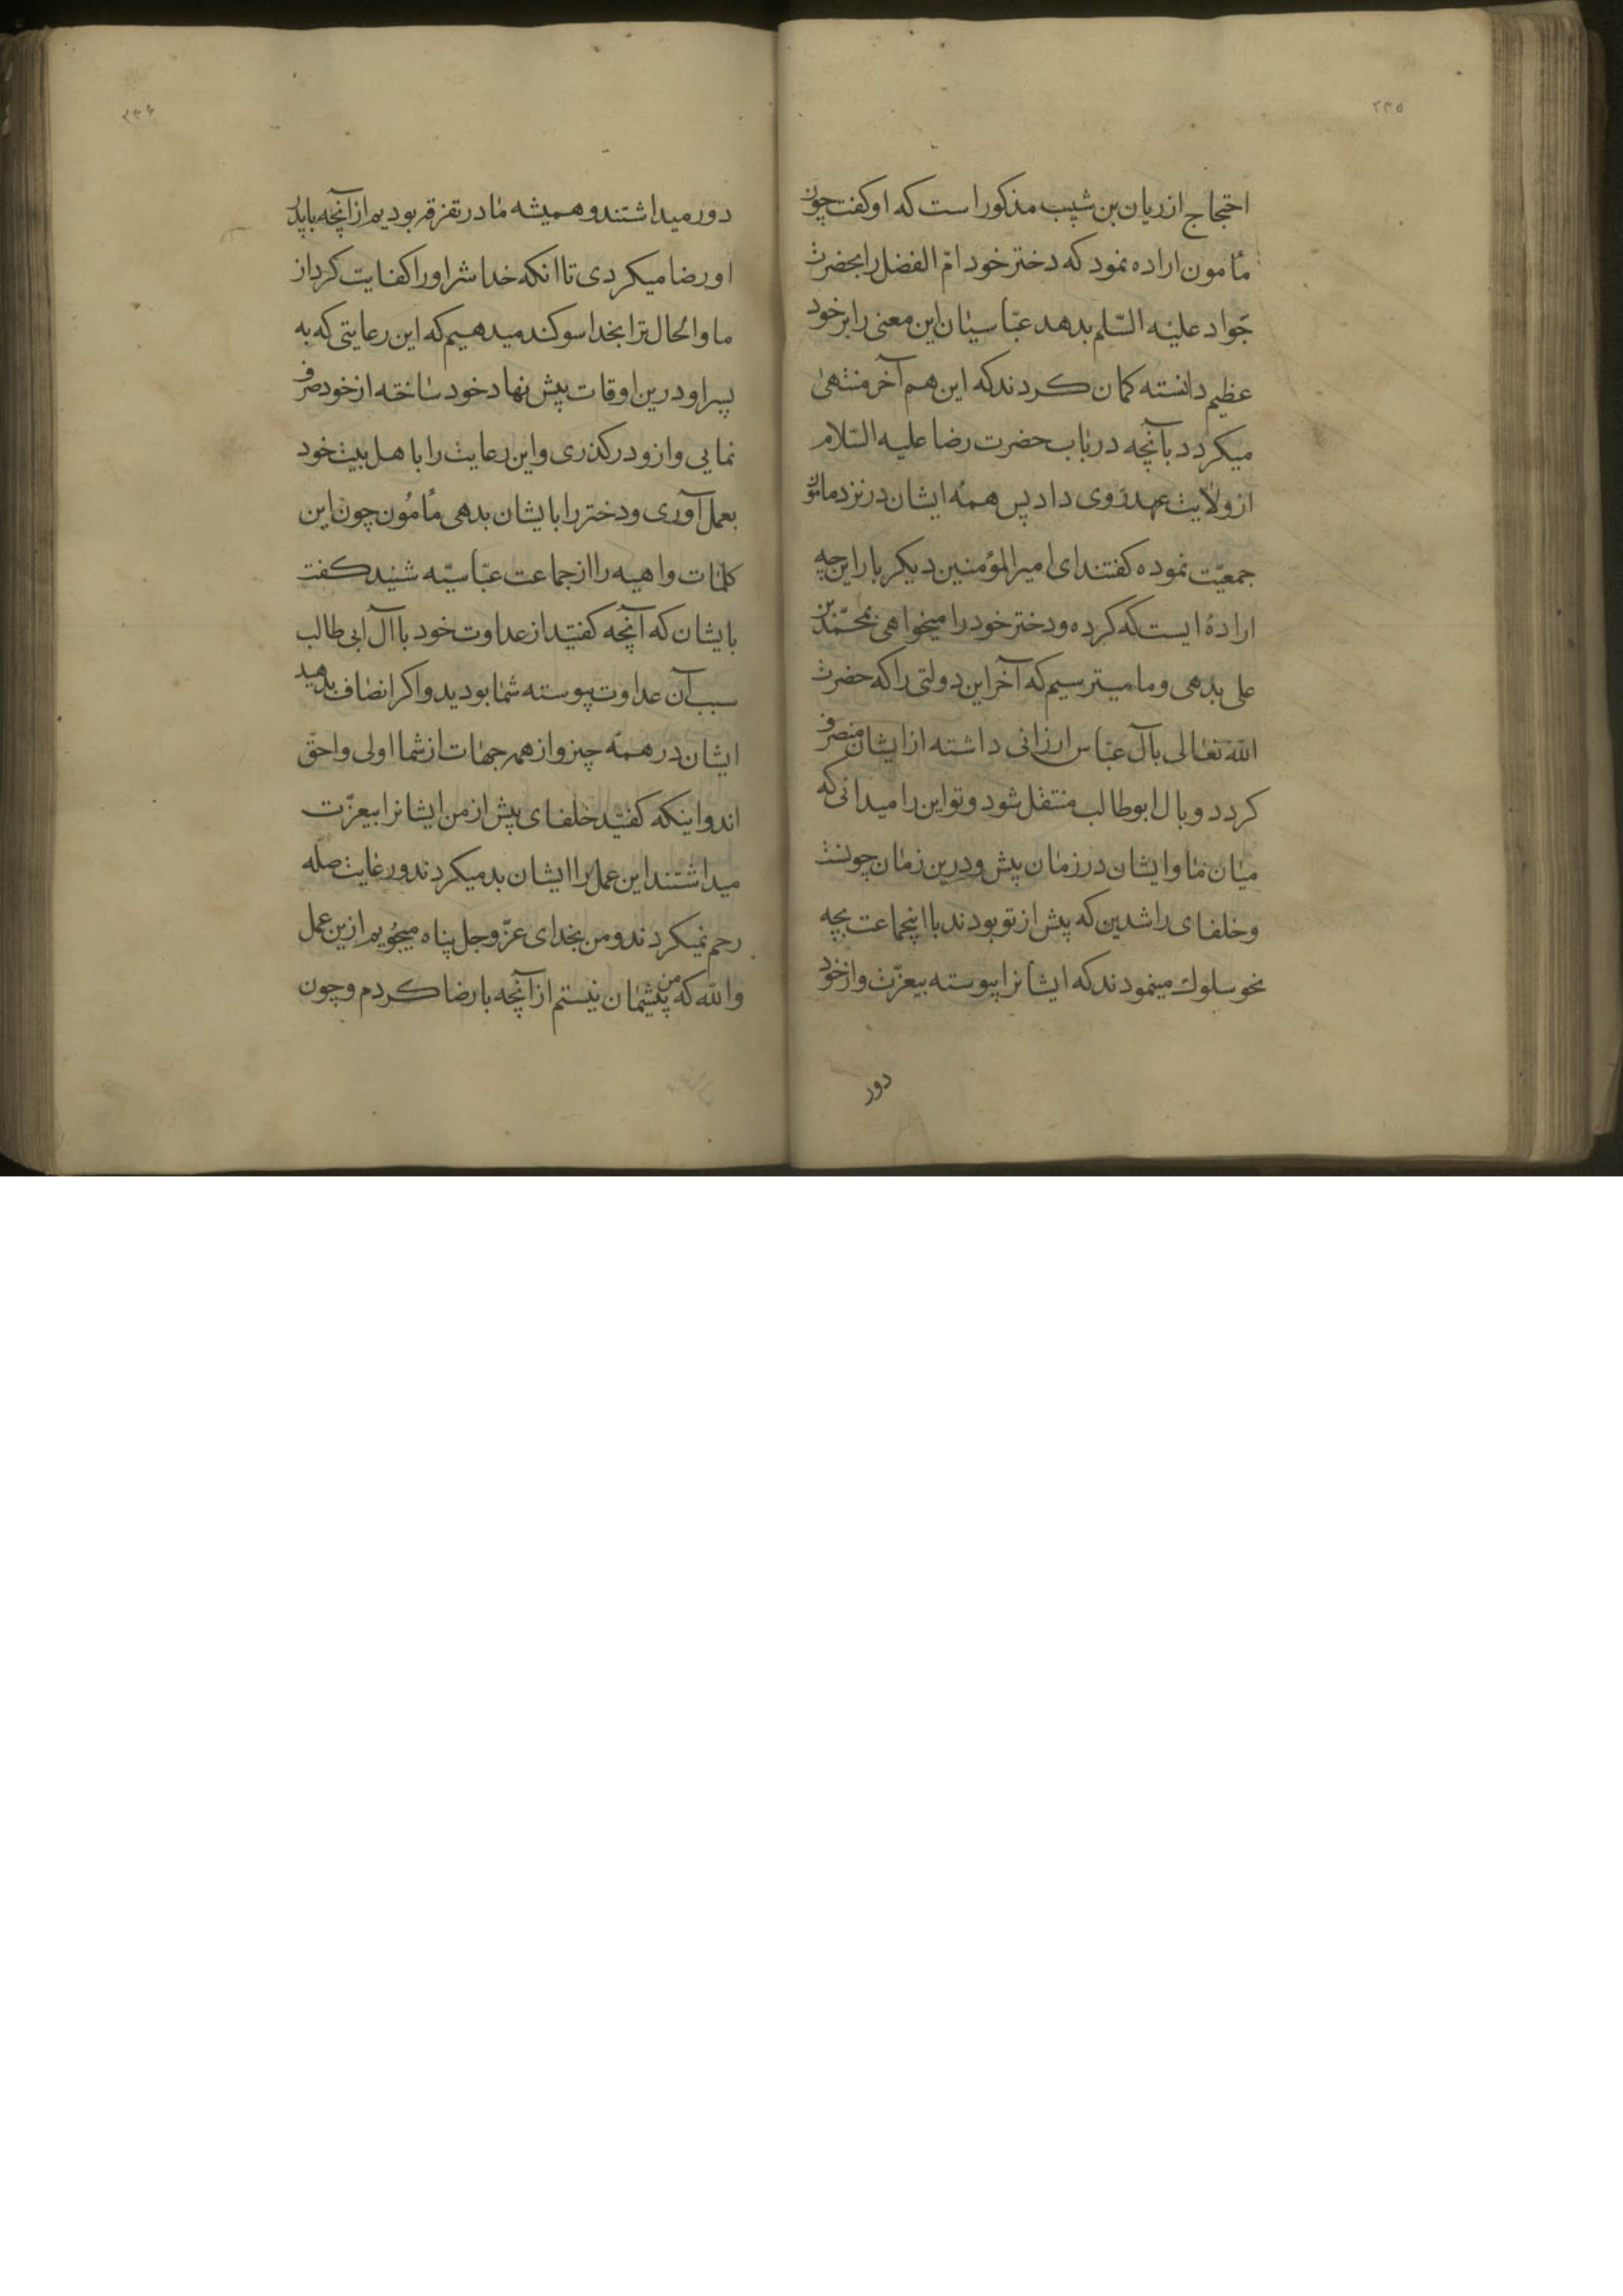 ۲۳۵
احتجاج از ریان بن شبیب مذکور است که او کفت چون
مأمون اراده نمود که دختر خود امّ الفضل را بحضرت
جواد علیه السّلم بدهد عبّاسیان این معنی را بر خود
عظیم دانسته کمان کردند که این هم آخر منتهی
میکردد بآنچه در باب حضرت رضا علیه السّلام
از ولایت عهد روی داد پس همهٔ ایشان در نزد مامون
جمعیّت نموده کفتند ای امیر المؤمنین دیکر بار این چه
ارادهٔ ایست که کرده و دختر خود را میخواهی بمحمّد بن
علی بدهی و ما میترسیم که آخر این دولتی را که حضرت
اللّه تعالی بآل عبّاس ارزانی داشته از ایشان منصرف
کردد و بال ابو طالب منتقل شود و تو این را میدانی که
میان ما و ایشان در زمان پیش و درین زمان چونست
و خلفای راشدین که پیش از تو بودند با اینجماعت بچه
نحو سلوك مینمودند که ایشانرا پیوسته بیعزّت و از خود
دور
۲۳۶
دور میداشتند و همیشه ما در تفرقه بودیم از آنچه با پدر
او رضا میکردی تا انکه خدا شر او را کفایت کرد از
ما و الحال ترا بخدا سوکند میدهیم که این رعایتی که به
پسر او درین اوقات پیش نهاد خود ساخته از خود صرف
نمایی و ازو درکذری و این رعایت را با هل بیت خود
بعمل آوری و دختر را بایشان بدهی مأمون چون این
کلمات واهیه را از جماعت عبّاسیّه شنید کفت
بایشان که آنچه کفتید از عداوت خود با آل ابی طالب
سبب آن عداوت پیوسته شما بودید و اکر انصاف بدهید
ایشان در همه چیز و از همه جهات از شما اولی و احقّ
اند و اینکه کفتید خلفای پیش از من ایشانرا بیعزّت
میداشتند این عمل را ایشان بد میکردند و رعایت صله
رحم نمیکردند و من بخدای عزّ و جل پناه میجویم ازین عمل
و اللّه که من پشیمان نیستم از آنچه با رضا کردم و چون